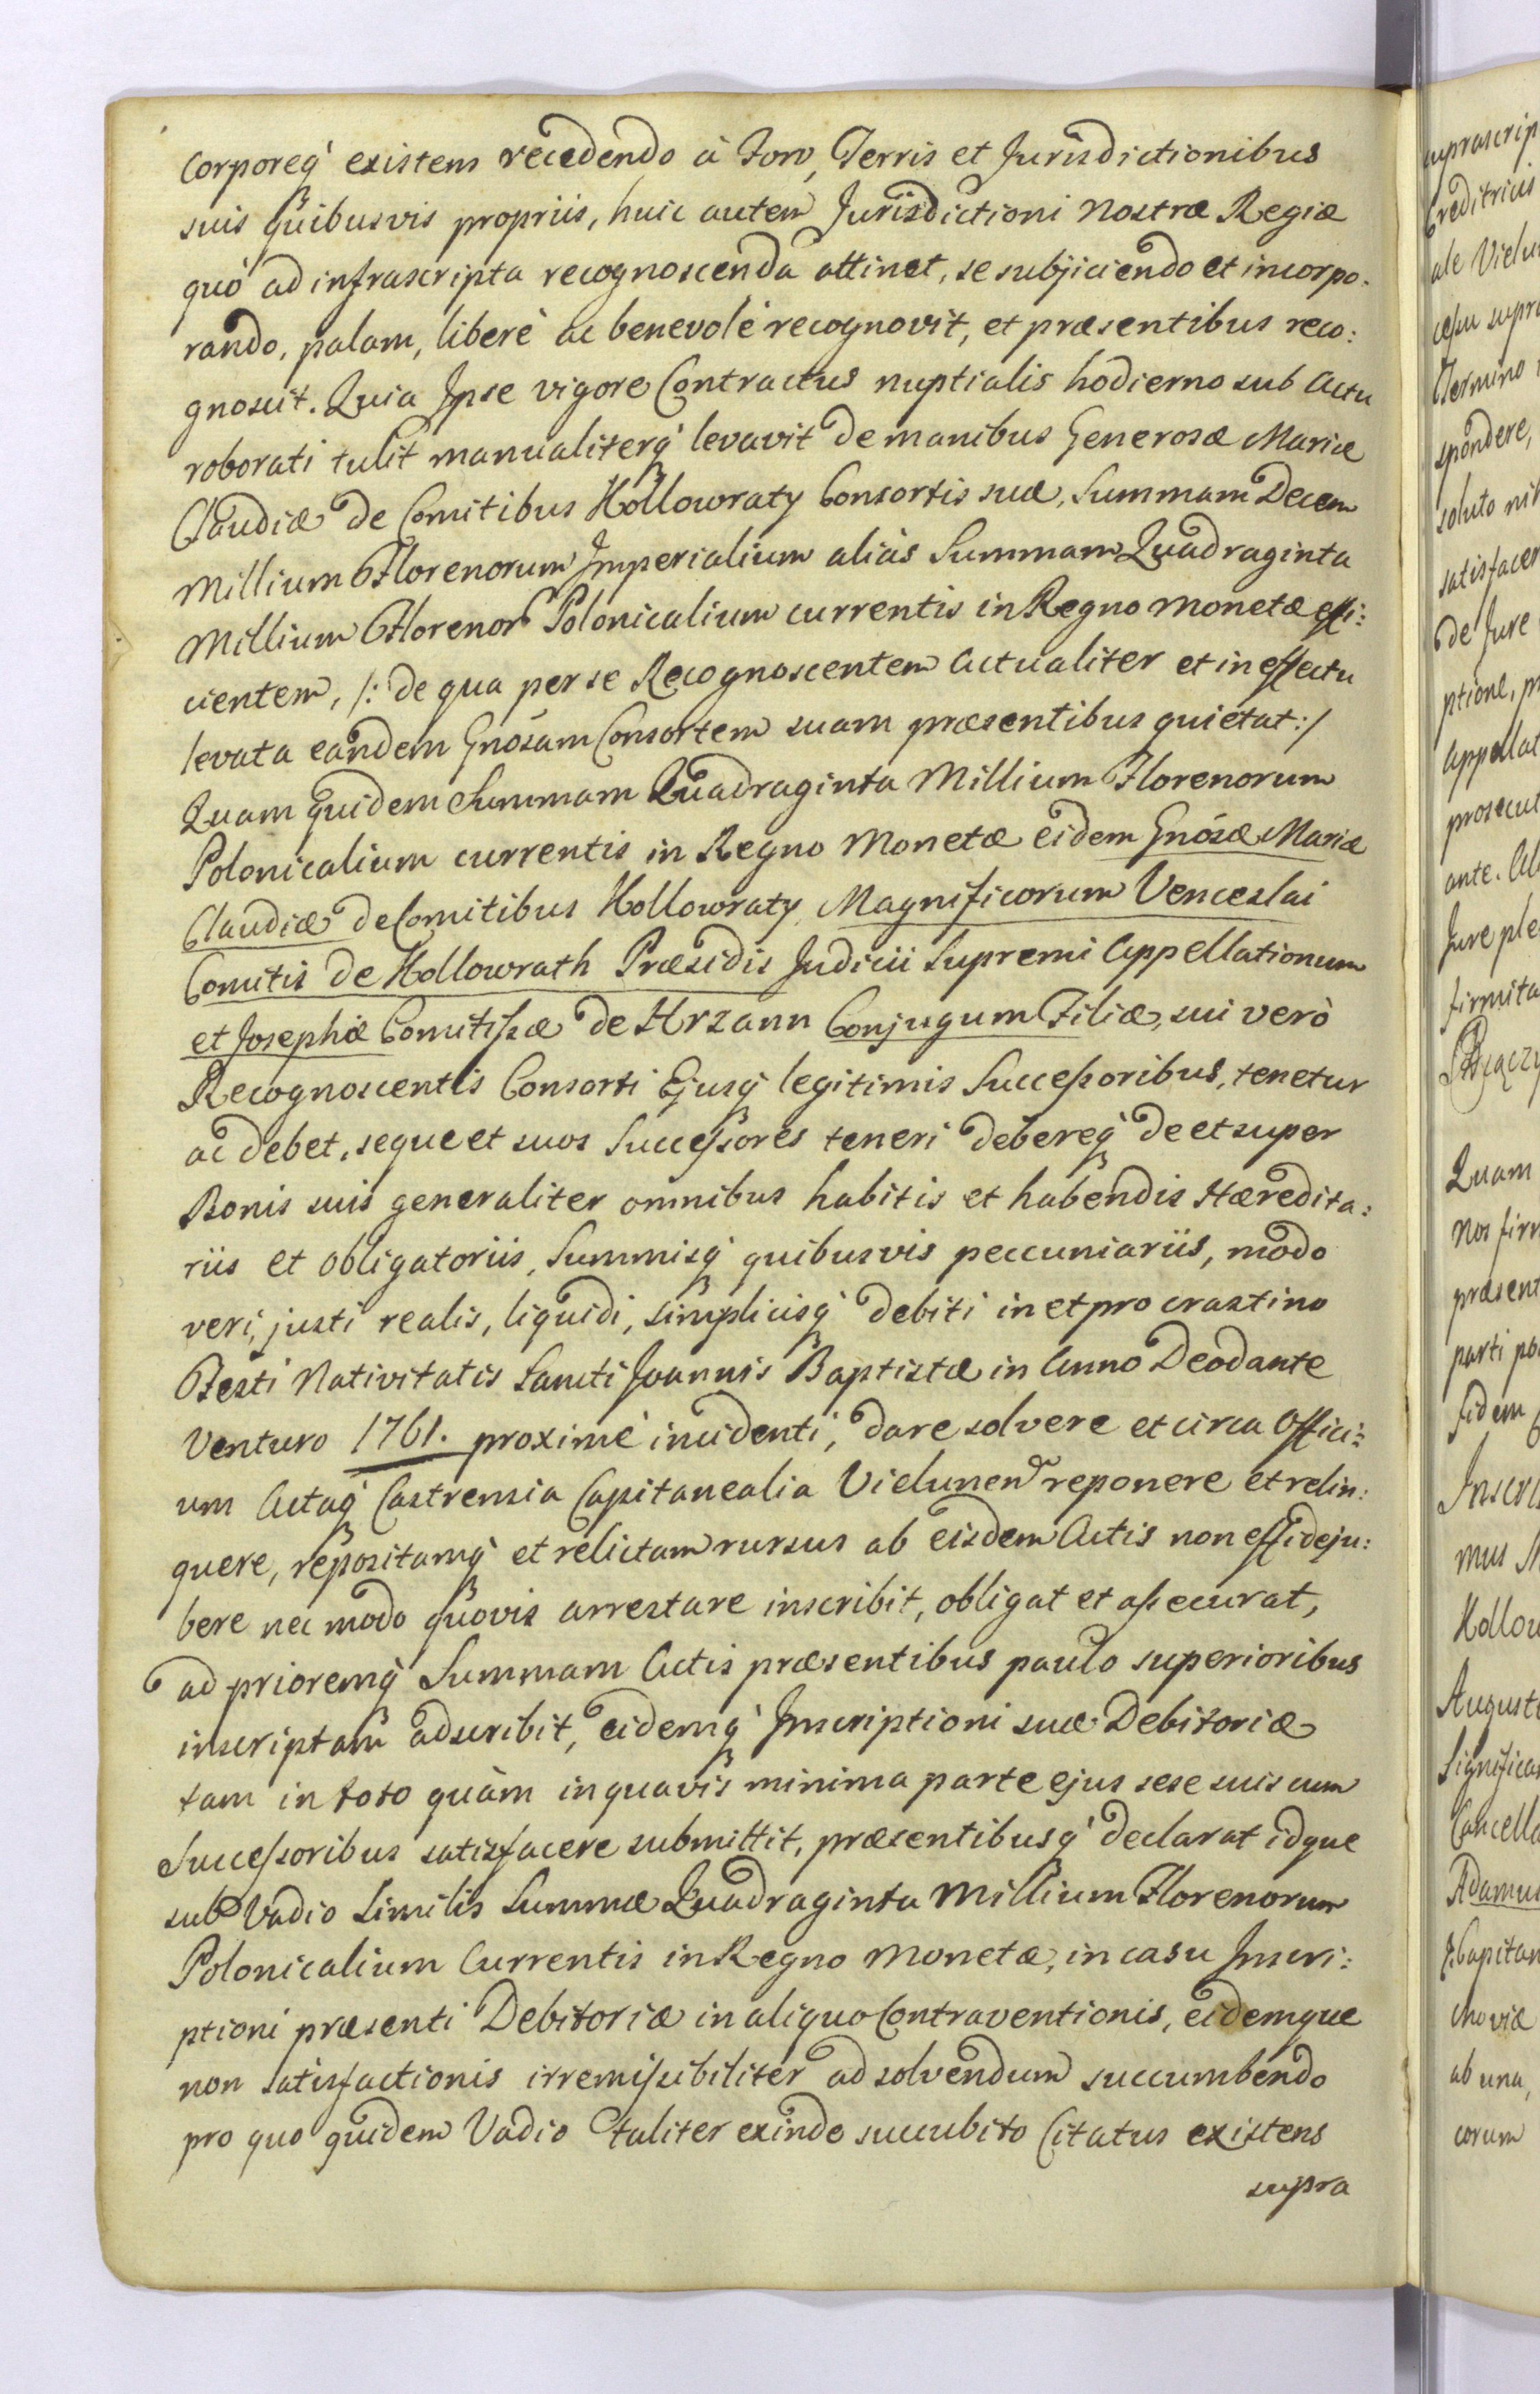 Corporeq' existens recedendo à Foro, Terris et Jurisdictionibus
suis quibusvis propriis, huic autem Jurisdictioni Nostræ Regiæ
quò ad infrascripta recognoscenda attinet, se subjiciendo et incorpo.
rando, palam, liberè ac benevolè recognovit, et præsentibus reco:
gnoscit. Quia Ipse vigore Contractus nuptialis hodierno sub Actu
roborati tulit manualiterq' levavit de manibus Generosæ Mariæ
Claudiæ de Comitibus Hollowraty Consortis suæ, Summam Decem
Millium Florenorum Imperialium aliàs Summam Quadraginta
Millium Florenor Polonicalium currentis in Regno Monetæ effi:
cientem, /: de qua per se Recognoscentem Actualiter et in effectu
levata eandem Gnosam Consortem suam præsentibus quietat :/
Quam quidem Summam Quadraginta Millium Florenorum
Polonicalium currentis in Regno Monetæ eidem Gnosæ Mariæ
Claudiæ de Comitibus Hollowraty, Magnificorum Venceslai
Comitis de Hollowrath Præsidis Judicii Supremi Appellationum
et Josephæ Comitißæ de Hrzann Conjugum Filiæ, sui verò
Recognoscentis Consorti Ejusq' legitimis Succeßoribus, tenetur
ac debet, seque et suos Succeßores teneri debereq' de et super
Bonis suis generaliter omnibus habitis et habendis Hæredita:
riis et obligatoriis, Summisq' quibusvis peccuniariis, modo
veri, justi realis, liquidi, simplicisq' debiti in et pro crastino
Festi Nativitatis Sancti Joannis Baptistæ in Anno Deo dante
Venturo 1761. proximè incidenti, dare solvere et circa Offici:
um Actaq' Castrensia Capitanealia Vielunen reponere et relin:
quere, repositamq' et relictam rursus ab eisdem Actis non effideju:
bere nec modo quovis arrestare inscribit, obligat et aßecurat,
ad prioremq' Summam Actis præsentibus paulo superioribus
inscriptam adscribit, eidemq' Inscriptioni suæ Debitoriæ
tam in toto quàm in quavis minima parte ejus sese suis cum
Succeßoribus satisfacere submittit, præsentibusq' declarat idque
sub Vadio Similis Summæ Quadraginta Millium Florenorum
Polonicalium Currentis in Regno Monetæ, in casu Inscri:
ptioni præsenti Debitoriæ in aliquo Contraventionis, eidemque
non satisfactionis irremißibiliter ad solvendum succumbendo
pro quo quidem Vadio taliter exinde succubito Citatus existens
supra